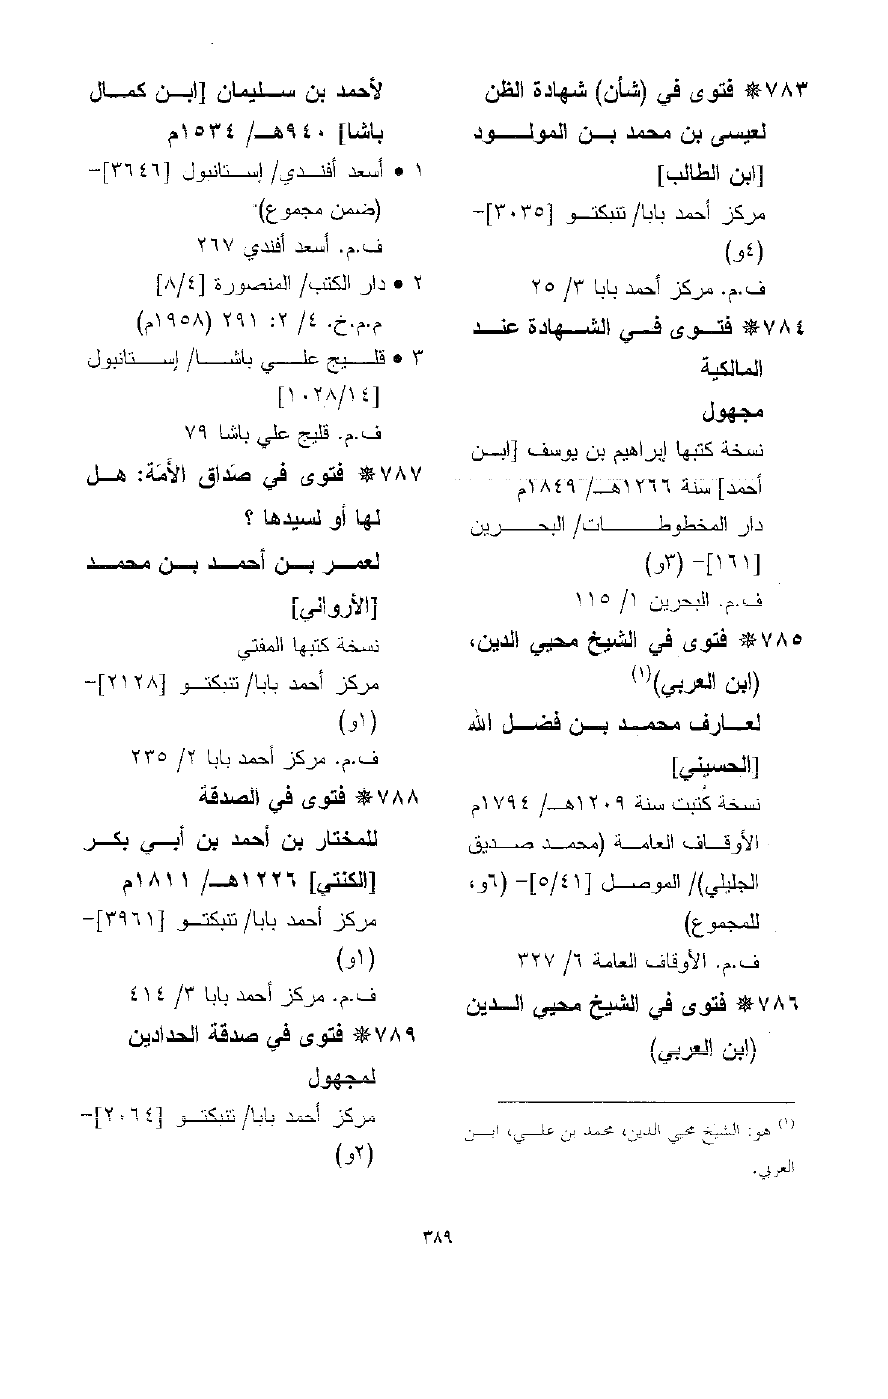 ٧٨٣* فتوى في (شأن) شهادة الظن
لعيسى بن محمد بن المولود
[ابن الطالب]
مركز أحمد بابا/ تنبكتو [٣٠٣٥]-
(٤و)
ف.م. مركز أحمد بابا ٣/ ٢٥
٧٨٤* فتوى في الشهادة عند
المالكية
مجهول
نسخة كتبها إبراهيم بن يوسف [ابن
أحمد] سنة ١٢٦٦هـ/ ١٨٤٩م
دار المخطوطات/ البحرين
[١٦١]- (٣و)
ف.م. البحرين ١/ ١١٥
٧٨٥* فتوى في الشيخ محيي الدين،
(ابن العربي)(١)
لعارف محمد بن فضل الله
[الحسيني]
نسخة كُتبت سنة ١٢٠٩هـ/ ١٧٩٤م
الأوقاف العامة (محمد صديق
الجليلي)/ الموصل [٥/٤١]- (٦و،
للمجموع)
ف.م. الأوقاف العامة ٦/ ٣٢٧
٧٨٦* فتوى في الشيخ محيي الدين
(ابن العربي)
(١) هو: الشيخ محيي الدين، محمد بن علي، ابن
العربي.
لأحمد بن سليمان [ابن كمال
باشا] ٩٤٠هـ/ ١٥٣٤م
١ • أسعد أفندي/ إستانبول [٣٦٤٦]-
(ضمن مجموع)
ف.م. أسعد أفندي ٢٦٧
٢ • دار الكتب/ المنصورة [٨/٤]
م.م.خ. ٤/ ٢: ٢٩١ (١٩٥٨م)
٣ • قليج علي باشا/ إستانبول
[١٠٢٨/١٤]
ف.م. قليج علي باشا ٧٩
٧٨٧* فتوى في صَداق الأَمَة: هل
لها أو لسيدها ؟
لعمر بن أحمد بن محمد
[الأرواني]
نسخة كتبها المفتي
مركز أحمد بابا/ تنبكتو [٢١٢٨]-
(١و)
ف.م. مركز أحمد بابا ٢/ ٢٣٥
٧٨٨* فتوى في الصدقة
للمختار بن أحمد بن أبي بكر
[الكنتي] ١٢٢٦هـ/ ١٨١١م
مركز أحمد بابا/ تنبكتو [٣٩٦١]-
(١و)
ف.م. مركز أحمد بابا ٣/ ٤١٤
٧٨٩* فتوى في صدقة الحدادين
لمجهول
مركز أحمد بابا/ تنبكتو [٢٠٦٤]-
(٢و)
٣٨٩